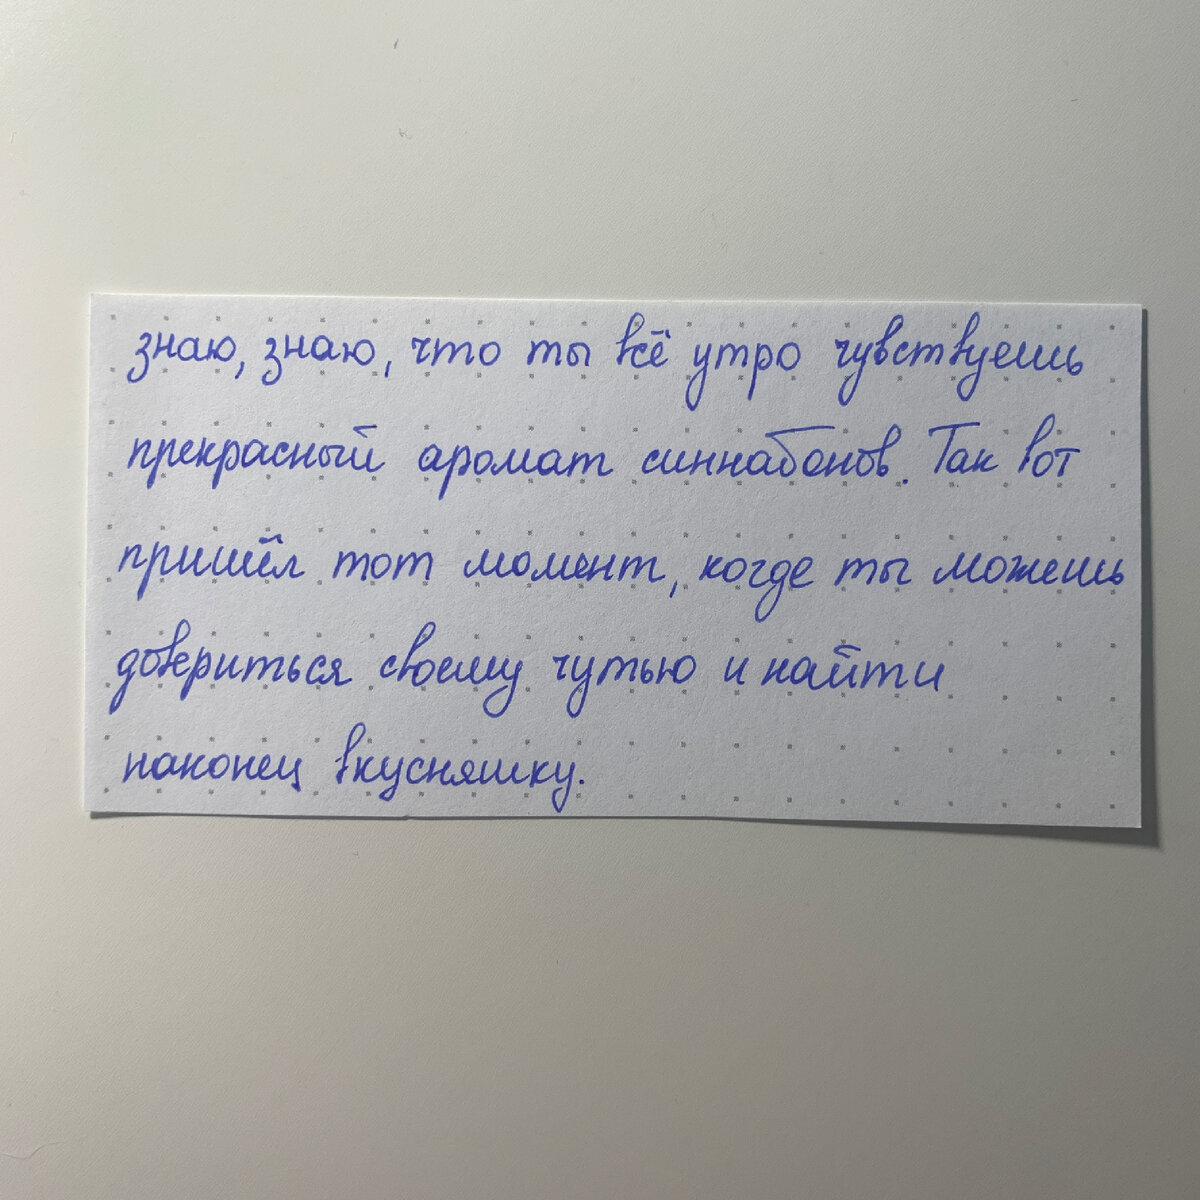 знаю, знаю, что ты всё утро чувствуешь
прекрасный аромат синнабонов. Так вот
пришёл тот момент, когде ты можешь
довериться своему чутью и найти
наконец вкусняшку.